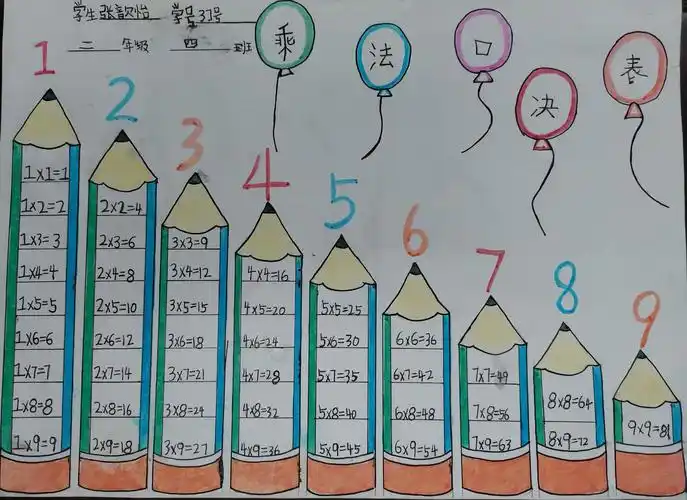 学生张歆怡 学号37号
二 年级 四 班
乘法口决表
1
1×1=1
1×2=2
1×3=3
1×4=4
1×5=5
1×6=6
1×7=7
1×8=8
1×9=9
2
2×2=4
2×3=6
2×4=8
2×5=10
2×6=12
2×7=14
2×8=16
2×9=18
3
3×3=9
3×4=12
3×5=15
3×6=18
3×7=21
3×8=24
3×9=27
4
4×4=16
4×5=20
4×6=24
4×7=28
4×8=32
4×9=36
5
5×5=25
5×6=30
5×7=35
5×8=40
5×9=45
6
6×6=36
6×7=42
6×8=48
6×9=54
7
7×7=49
7×8=56
7×9=63
8
8×8=64
8×9=72
9
9×9=81